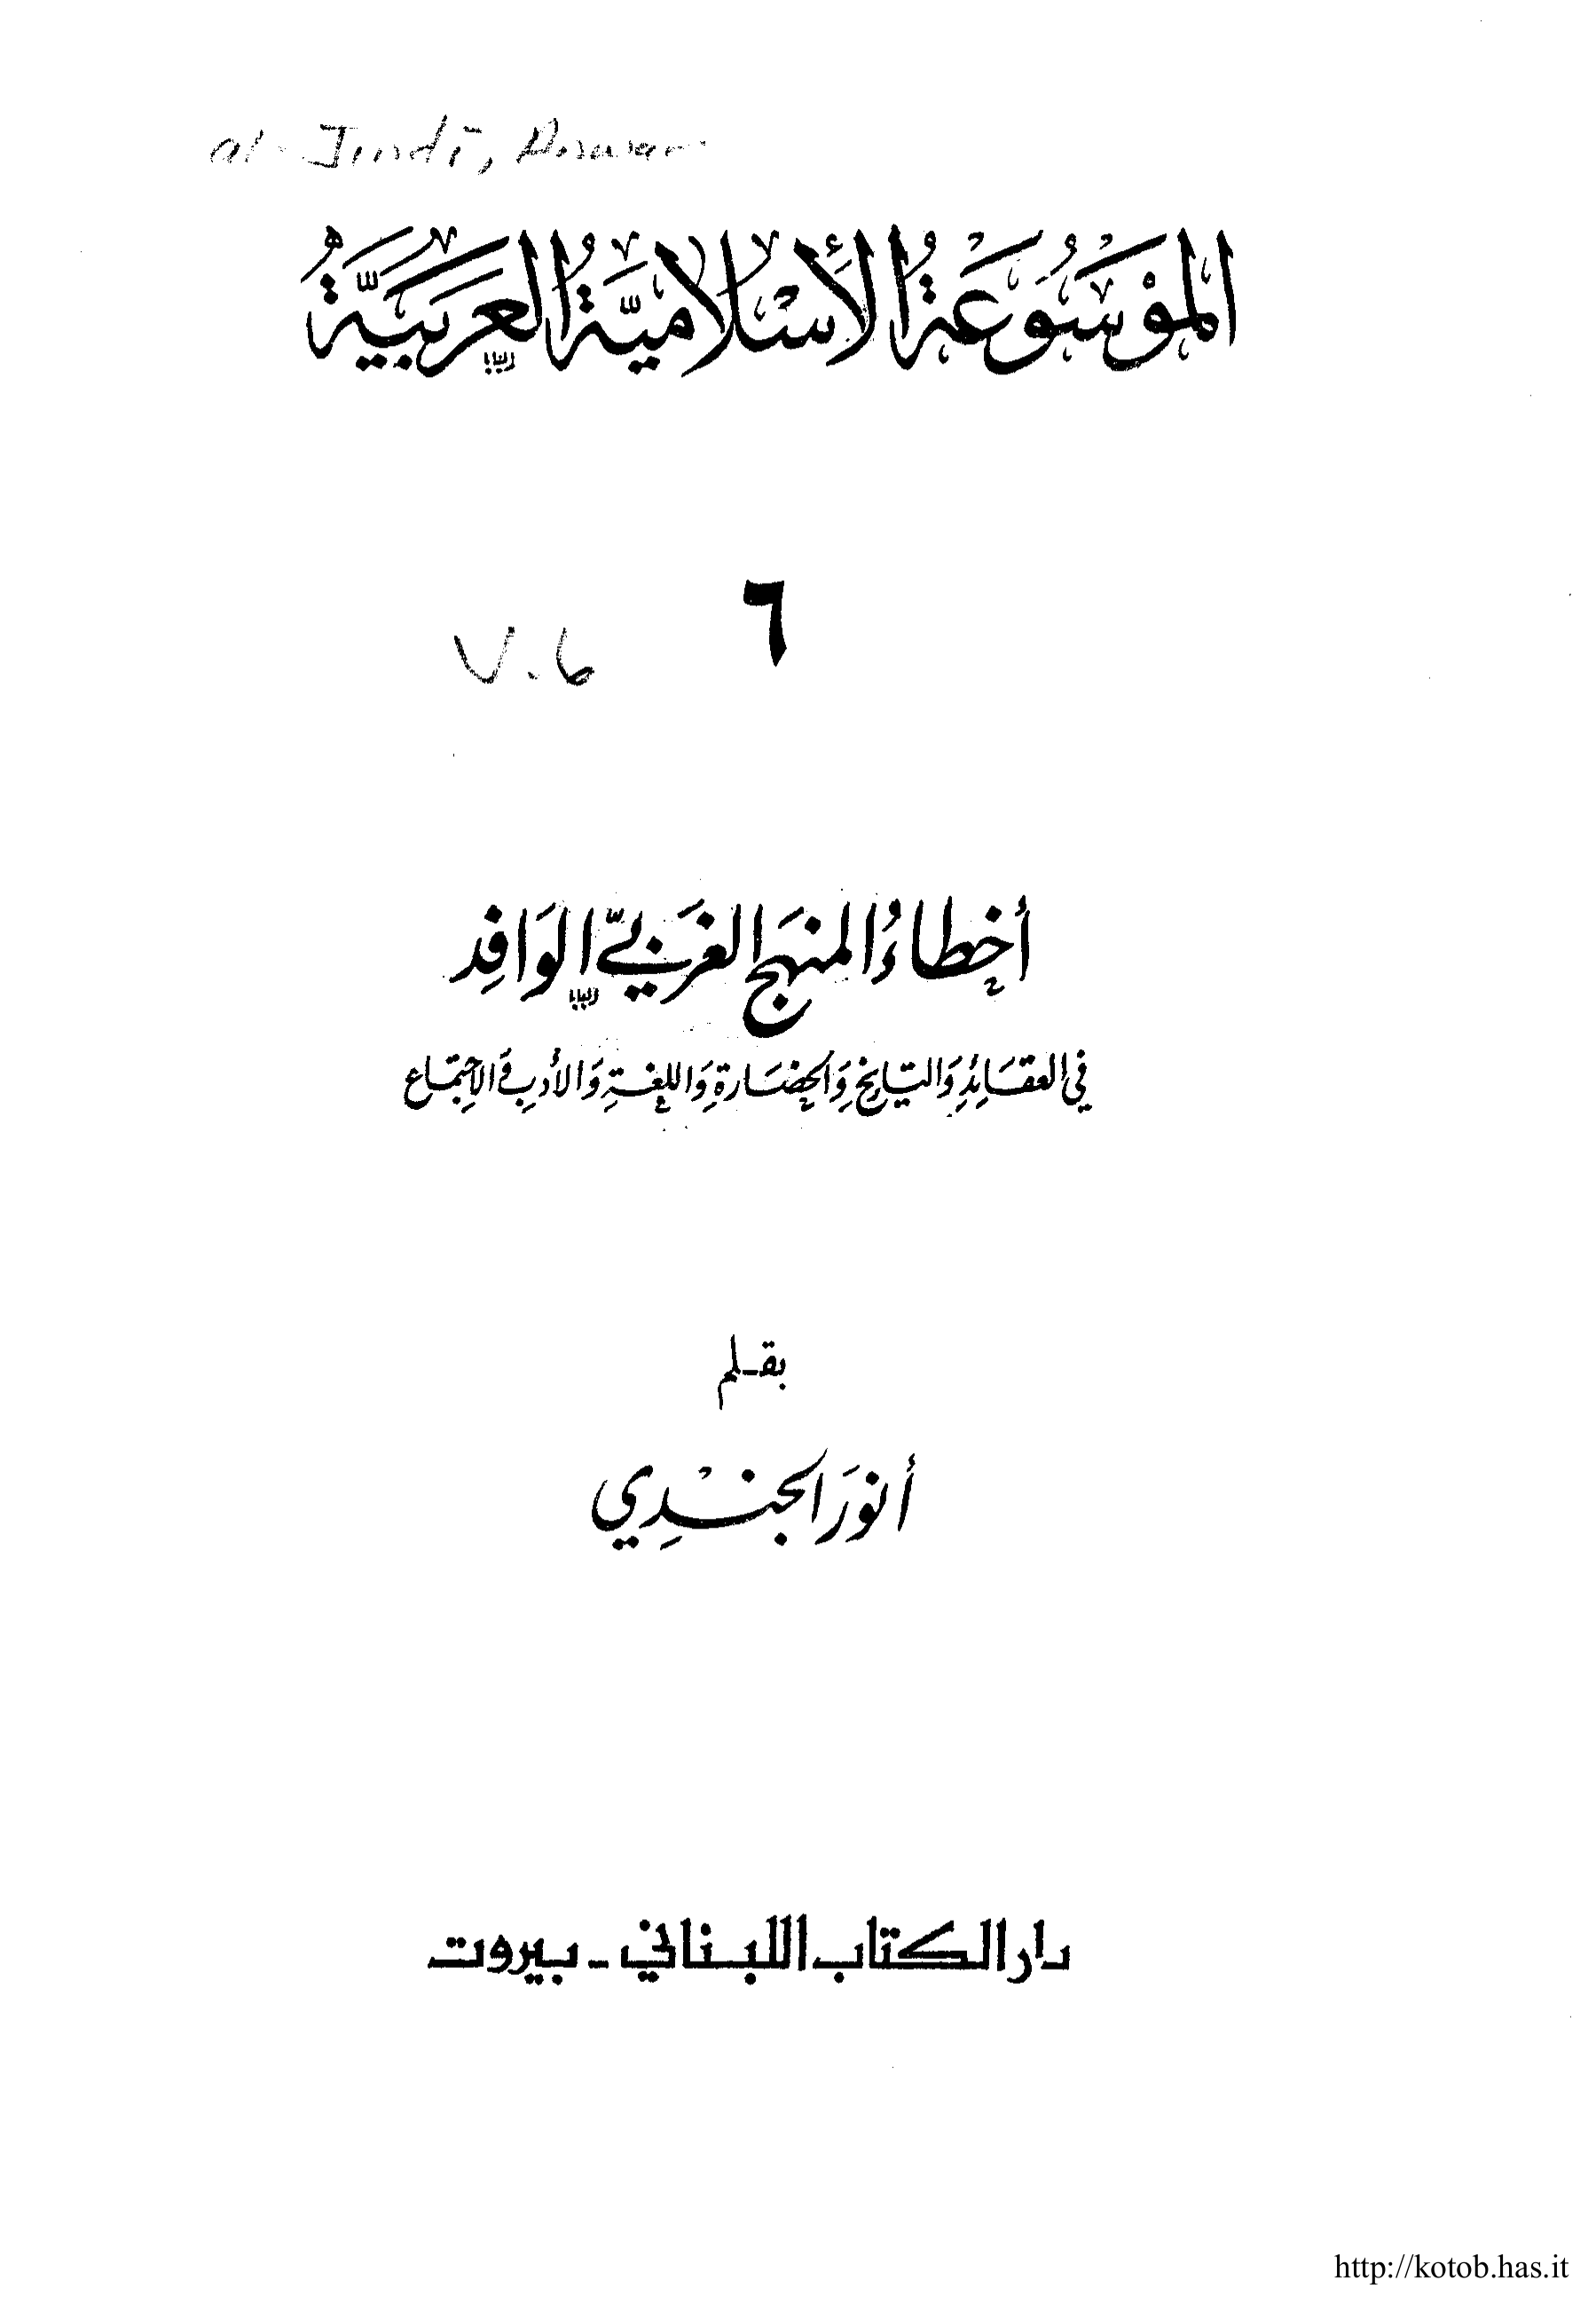 al-Jundī, Anwar
الموسوعة الأسلامية العربية
٦
V.6
أخطاء المنهج الغربي الوافد
في العقائد والتاريخ والحضارة واللغة والأدب والاجتماع
بقلم
أنور الجندي
دار الكتاب اللبناني - بيروت
http://kotob.has.it